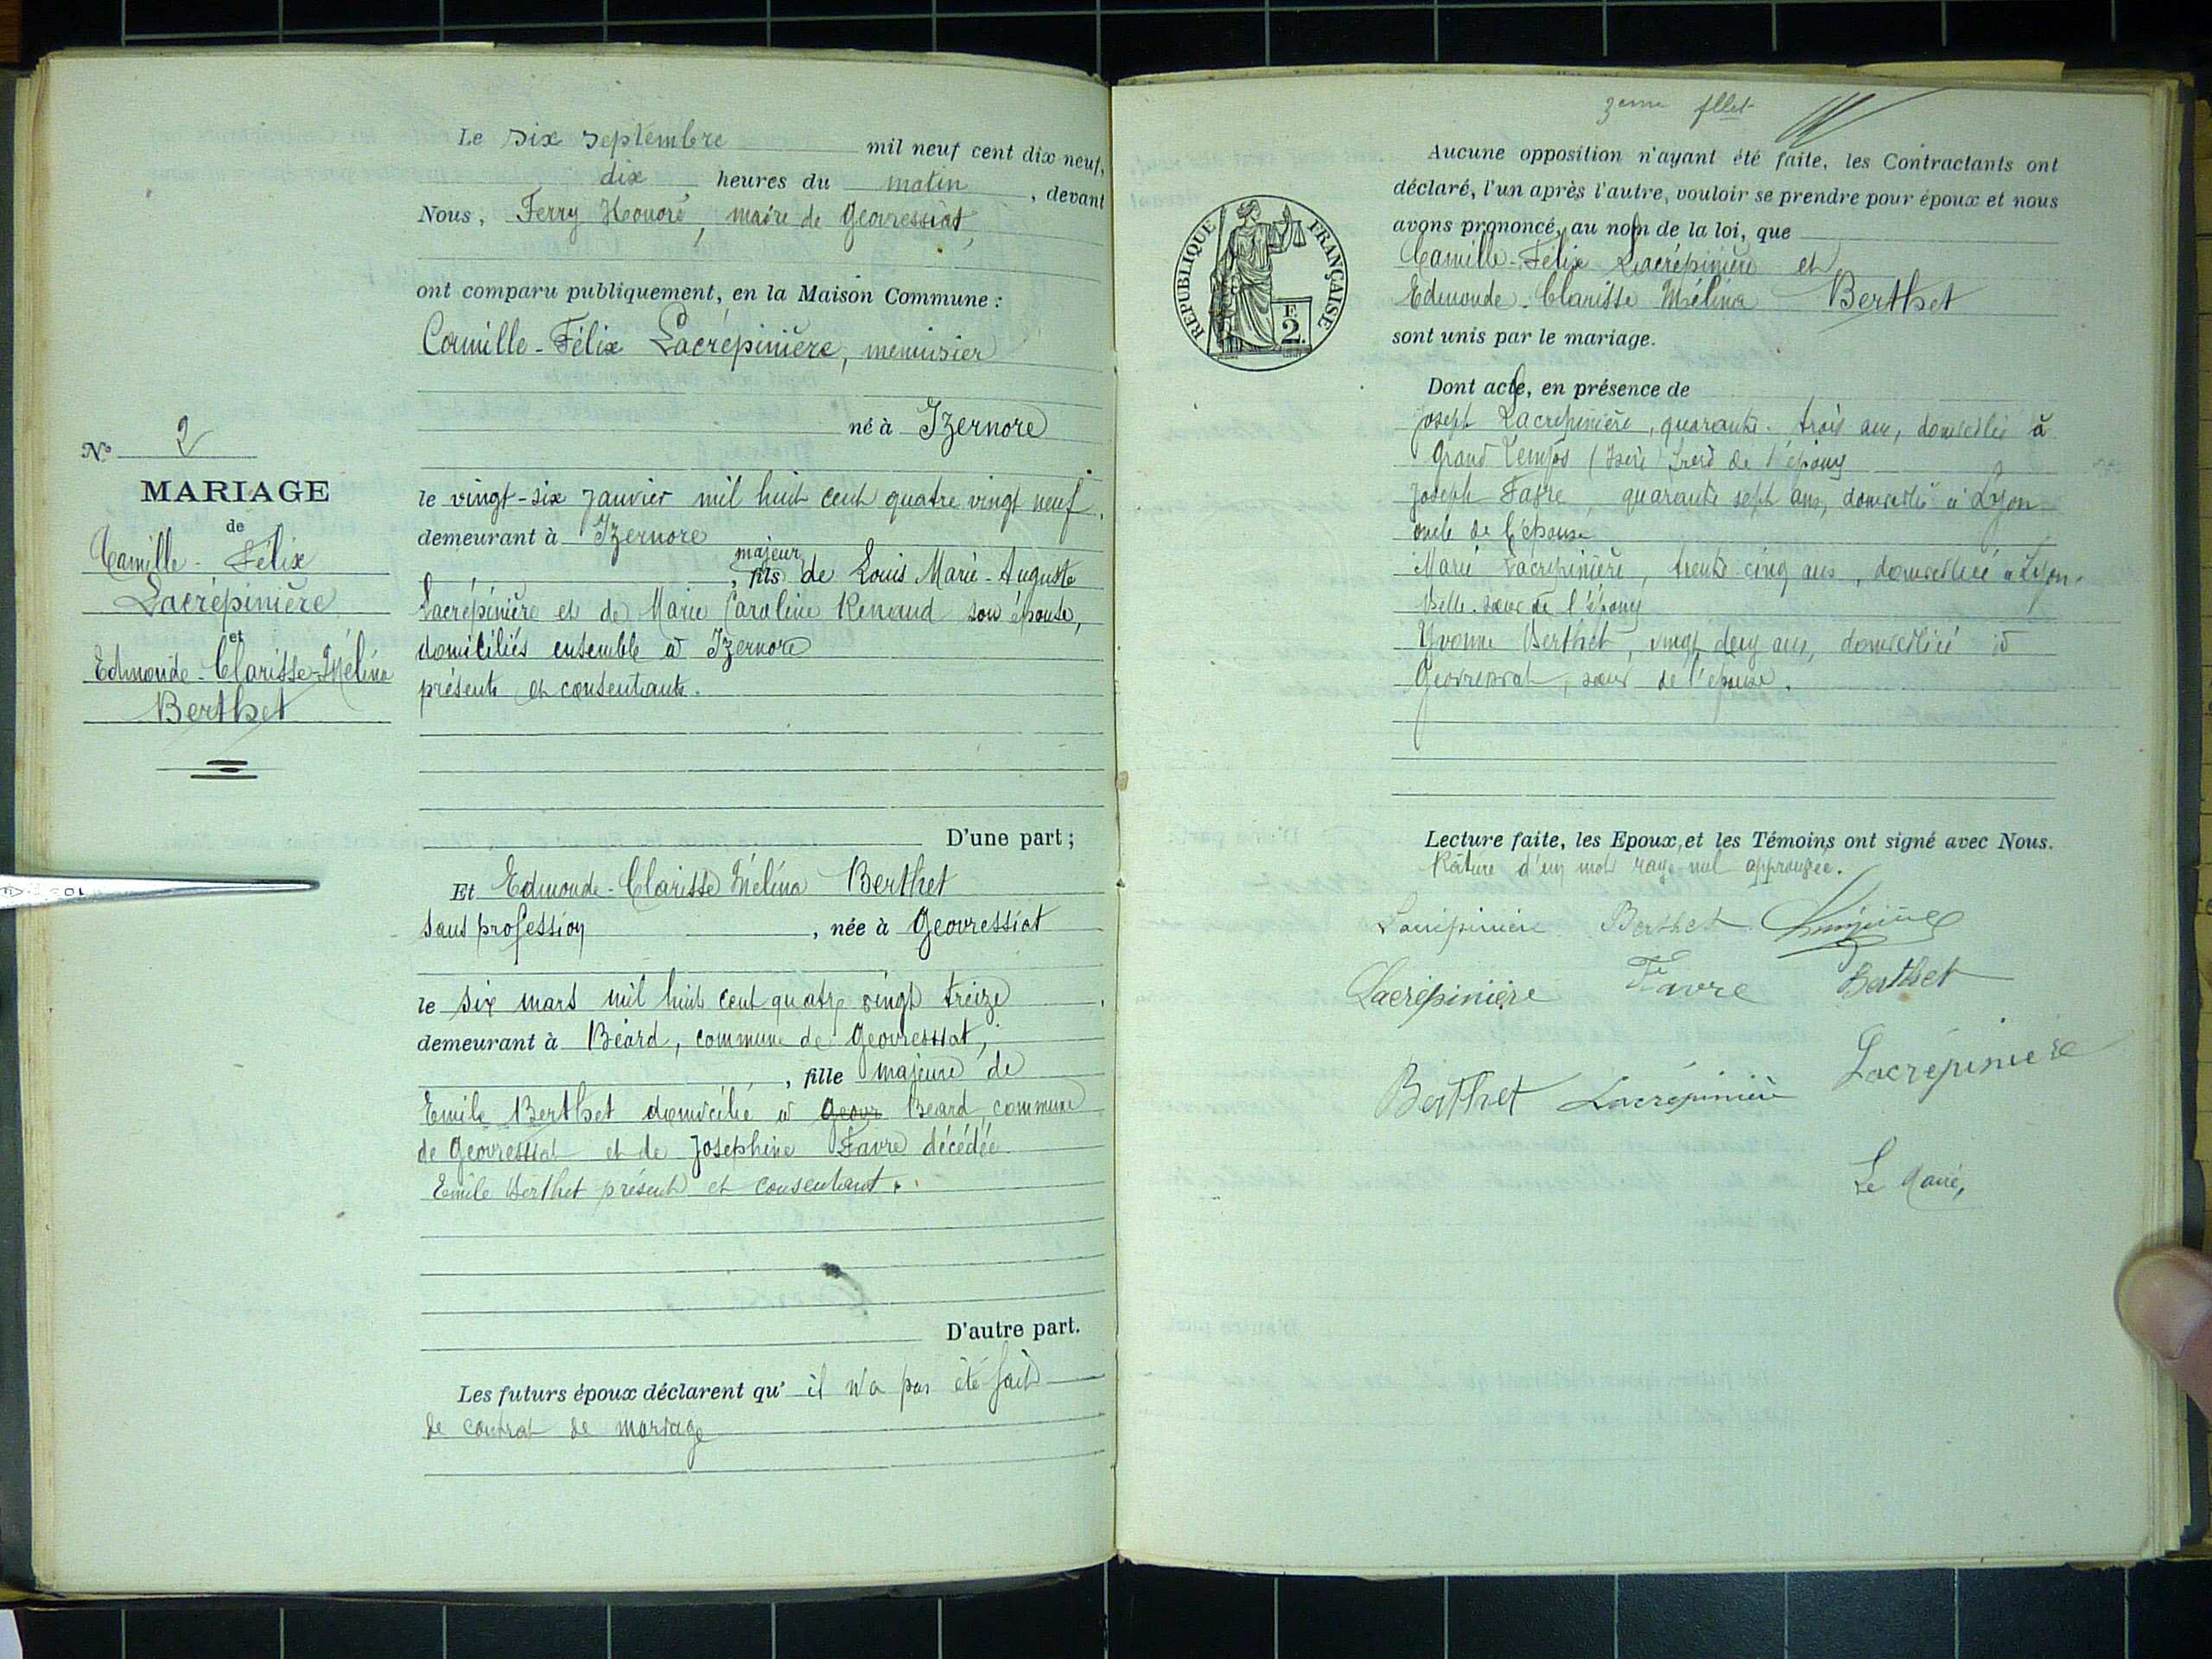 Nº 2
MARIAGE
de
Camille-Félix
Lacrépinière
et
Edmonde-Clarisse-Mélina
Berthet
Le six septembre mil neuf cent dix neuf,
dix heures du matin, devant
Nous, Ferry Honoré, maire de Geovressiat,
ont comparu publiquement, en la Maison Commune :
Camille-Félix Lacrépinière, menuisier
né à Izernore
le vingt-six janvier mil huit cent quatre vingt neuf,
demeurant à Izernore
majeur
, fils de Louis Marie-Auguste
Lacrépinière et de Marie Caroline Renaud son épouse,
domiciliés ensemble à Izernore
présents et consentants.
D'une part ;
Et Edmonde-Clarisse Mélina Berthet
sans profession, née à Geovressiat
le six mars mil huit cent quatre vingt treize,
demeurant à Béard, commune de Geovressiat,
, fille majeure de
Emile Berthet domicilié à Geovr Beard, commune
de Geovressiat et de Josephine Favre décédée
Emile Berthet présent et consentant.
D'autre part.
Les futurs époux déclarent qu'il n'a pas été fait
de contrat de mariage
3eme fllet
REPUBLIQUE FRANÇAISE
F.
2.
Aucune opposition n'ayant été faite, les Contractants ont
déclaré, l'un après l'autre, vouloir se prendre pour époux et nous
avons prononcé, au nom de la loi, que
Camille-Félix Lacrépinière et
Edmonde-Clarisse Mélina Berthet
sont unis par le mariage.
Dont acte, en présence de
Joseph Lacrepinière, quarante-trois ans, domicilié à
Grand Lemps (Isère) frère de l'époux
Joseph Favre, quarante sept ans, domicilié à Lyon
oncle de l'épouse
Marie Lacrepinière, trente cinq ans, domiciliée à Lyon,
belle-sœur de l'époux
Yvonne Berthet, vingt deux ans, domiciliée à
Geovressiat, sœur de l'épouse.
Lecture faite, les Epoux, et les Témoins ont signé avec Nous.
Râture d'un mot rayé nul approuvée.
Lacrépinière Berthet
Lacrépinière Favre Berthet
Berthet Lacrépinière Lacrépinière
Le Maire,